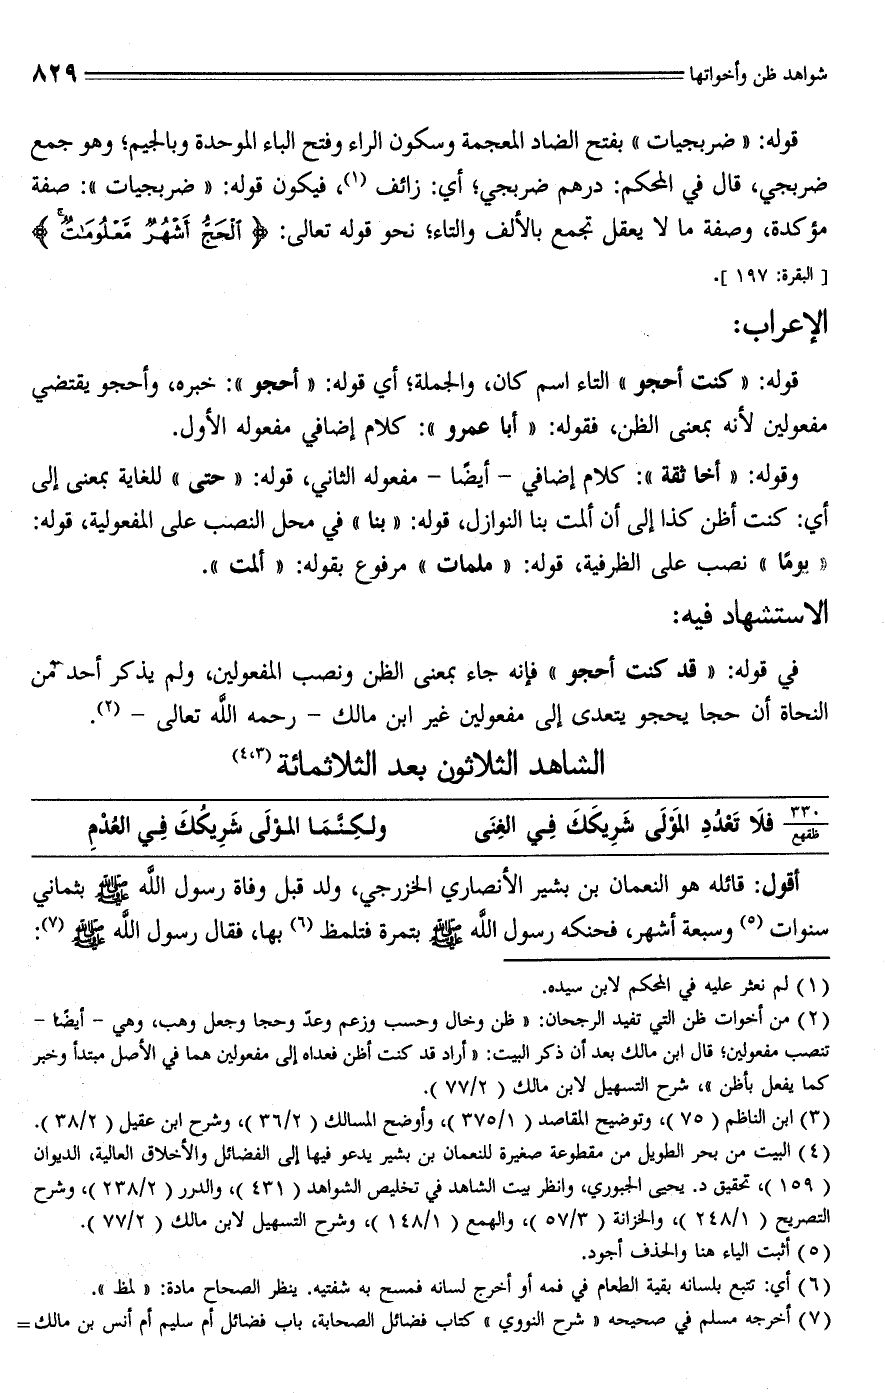 شواهد ظن وأخواتها ٨٢٩
قوله: « ضربجيات » بفتح الضاد المعجمة وسكون الراء وفتح الباء الموحدة وبالجيم؛ وهو جمع
ضربجي، قال في المحكم: درهم ضربجي؛ أي: زائف (١)، فيكون قوله: « ضربجيات »: صفة
مؤكدة، وصفة ما لا يعقل تجمع بالألف والتاء؛ نحو قوله تعالى: ﴿ ٱلْحَجُّ أَشْهُرٌ مَّعْلُومَٰتٌ ﴾
[ البقرة: ١٩٧ ].
الإعراب:
قوله: « كنت أحجو » التاء اسم كان، والجملة؛ أي قوله: « أحجو »: خبره، وأحجو يقتضي
مفعولين لأنه بمعنى الظن، فقوله: « أبا عمرو »: كلام إضافي مفعوله الأول.
وقوله: « أخا ثقة »: كلام إضافي – أيضًا – مفعوله الثاني، قوله: « حتى » للغاية بمعنى إلى
أي: كنت أظن كذا إلى أن ألمت بنا النوازل، قوله: « بنا » في محل النصب على المفعولية، قوله:
« يومًا » نصب على الظرفية، قوله: « ملمات » مرفوع بقوله: « ألمت ».
الاستشهاد فيه:
في قوله: « قد كنت أحجو » فإنه جاء بمعنى الظن ونصب المفعولين، ولم يذكر أحد من
النحاة أن حجا يحجو يتعدى إلى مفعولين غير ابن مالك – رحمه اللَّه تعالى – (٢).
الشاهد الثلاثون بعد الثلاثمائة (٣،٤)
٣٣٠ ظقهع فلَا تَعْدُدِ المَوْلَى شَرِيكَكَ فِي الغِنَى ولكِنَّمَا المَوْلَى شَرِيكُكَ فِي العُدْمِ
أقول: قائله هو النعمان بن بشير الأنصاري الخزرجي، ولد قبل وفاة رسول اللَّه ﷺ بثماني
سنوات (٥) وسبعة أشهر، فحنكه رسول اللَّه ﷺ بتمرة فتلمظ (٦) بها، فقال رسول اللَّه ﷺ (٧):
(١) لم نعثر عليه في المحكم لابن سيده.
(٢) من أخوات ظن التي تفيد الرجحان: « ظن وخال وحسب وزعم وعدّ وحجا وجعل وهب، وهي – أيضًا –
تنصب مفعولين؛ قال ابن مالك بعد أن ذكر البيت: « أراد قد كنت أظن فعداه إلى مفعولين هما في الأصل مبتدأ وخبر
كما يفعل بأظن »، شرح التسهيل لابن مالك ( ٧٧/٢ ).
(٣) ابن الناظم ( ٧٥ )، وتوضيح المقاصد ( ٣٧٥/١ )، وأوضح المسالك ( ٣٦/٢ )، وشرح ابن عقيل ( ٣٨/٢ ).
(٤) البيت من بحر الطويل من مقطوعة صغيرة للنعمان بن بشير يدعو فيها إلى الفضائل والأخلاق العالية، الديوان
( ١٥٩ )، تحقيق د. يحيى الجبوري، وانظر بيت الشاهد في تخليص الشواهد ( ٤٣١ )، والدرر ( ٢٣٨/٢ )، وشرح
التصريح ( ٢٤٨/١ )، والخزانة ( ٥٧/٣ )، والهمع ( ١٤٨/١ )، وشرح التسهيل لابن مالك ( ٧٧/٢ ).
(٥) أثبت الياء هنا والحذف أجود.
(٦) أي: تتبع بلسانه بقية الطعام في فمه أو أخرج لسانه فمسح به شفتيه. ينظر الصحاح مادة: « لمظ ».
(٧) أخرجه مسلم في صحيحه « شرح النووي » كتاب فضائل الصحابة، باب فضائل أم سليم أم أنس بن مالك =